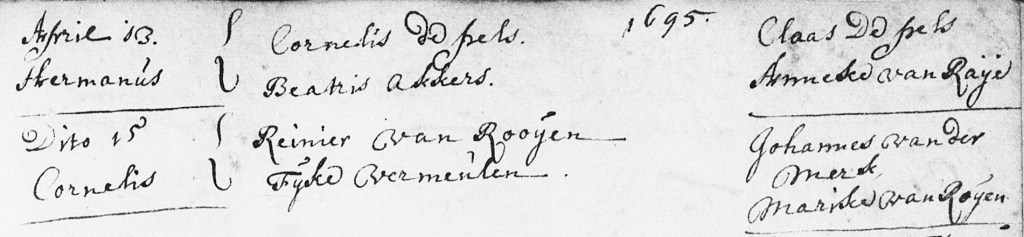 1695.
April 13.
Hermanus
Cornelis de fels.
Beatris Akkers.
Claas De fels
Anneke van Raÿe
Dito 15
Cornelis
Reinier van Rooÿen
Fÿcke Vermeulen.
Johannes van der
Merk,
Mariske van Roÿen.